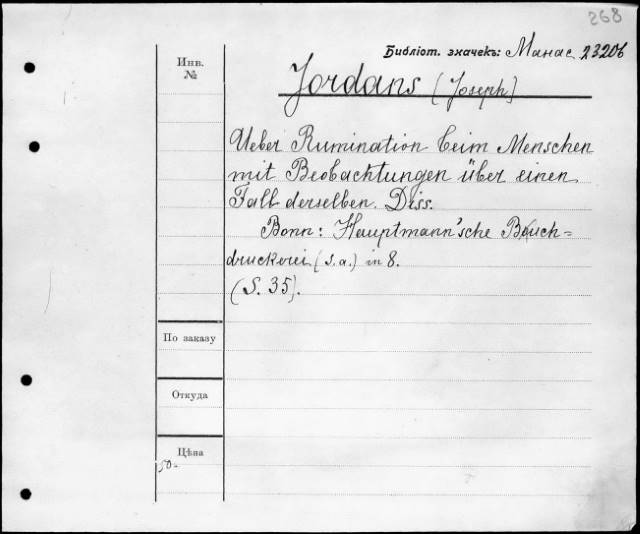 268
Библіот. значекъ: Манас 23206
Инв.
№
Jordans (Joseph)
Ueber Rumination beim Menschen
mit Beobachtungen über einen
Fall derselben. Diss.
Bonn: Hauptmann'sche Buch=
druckerei (s. a.) in 8.
(S. 35).
По заказу
Откуда
Цѣна
50-